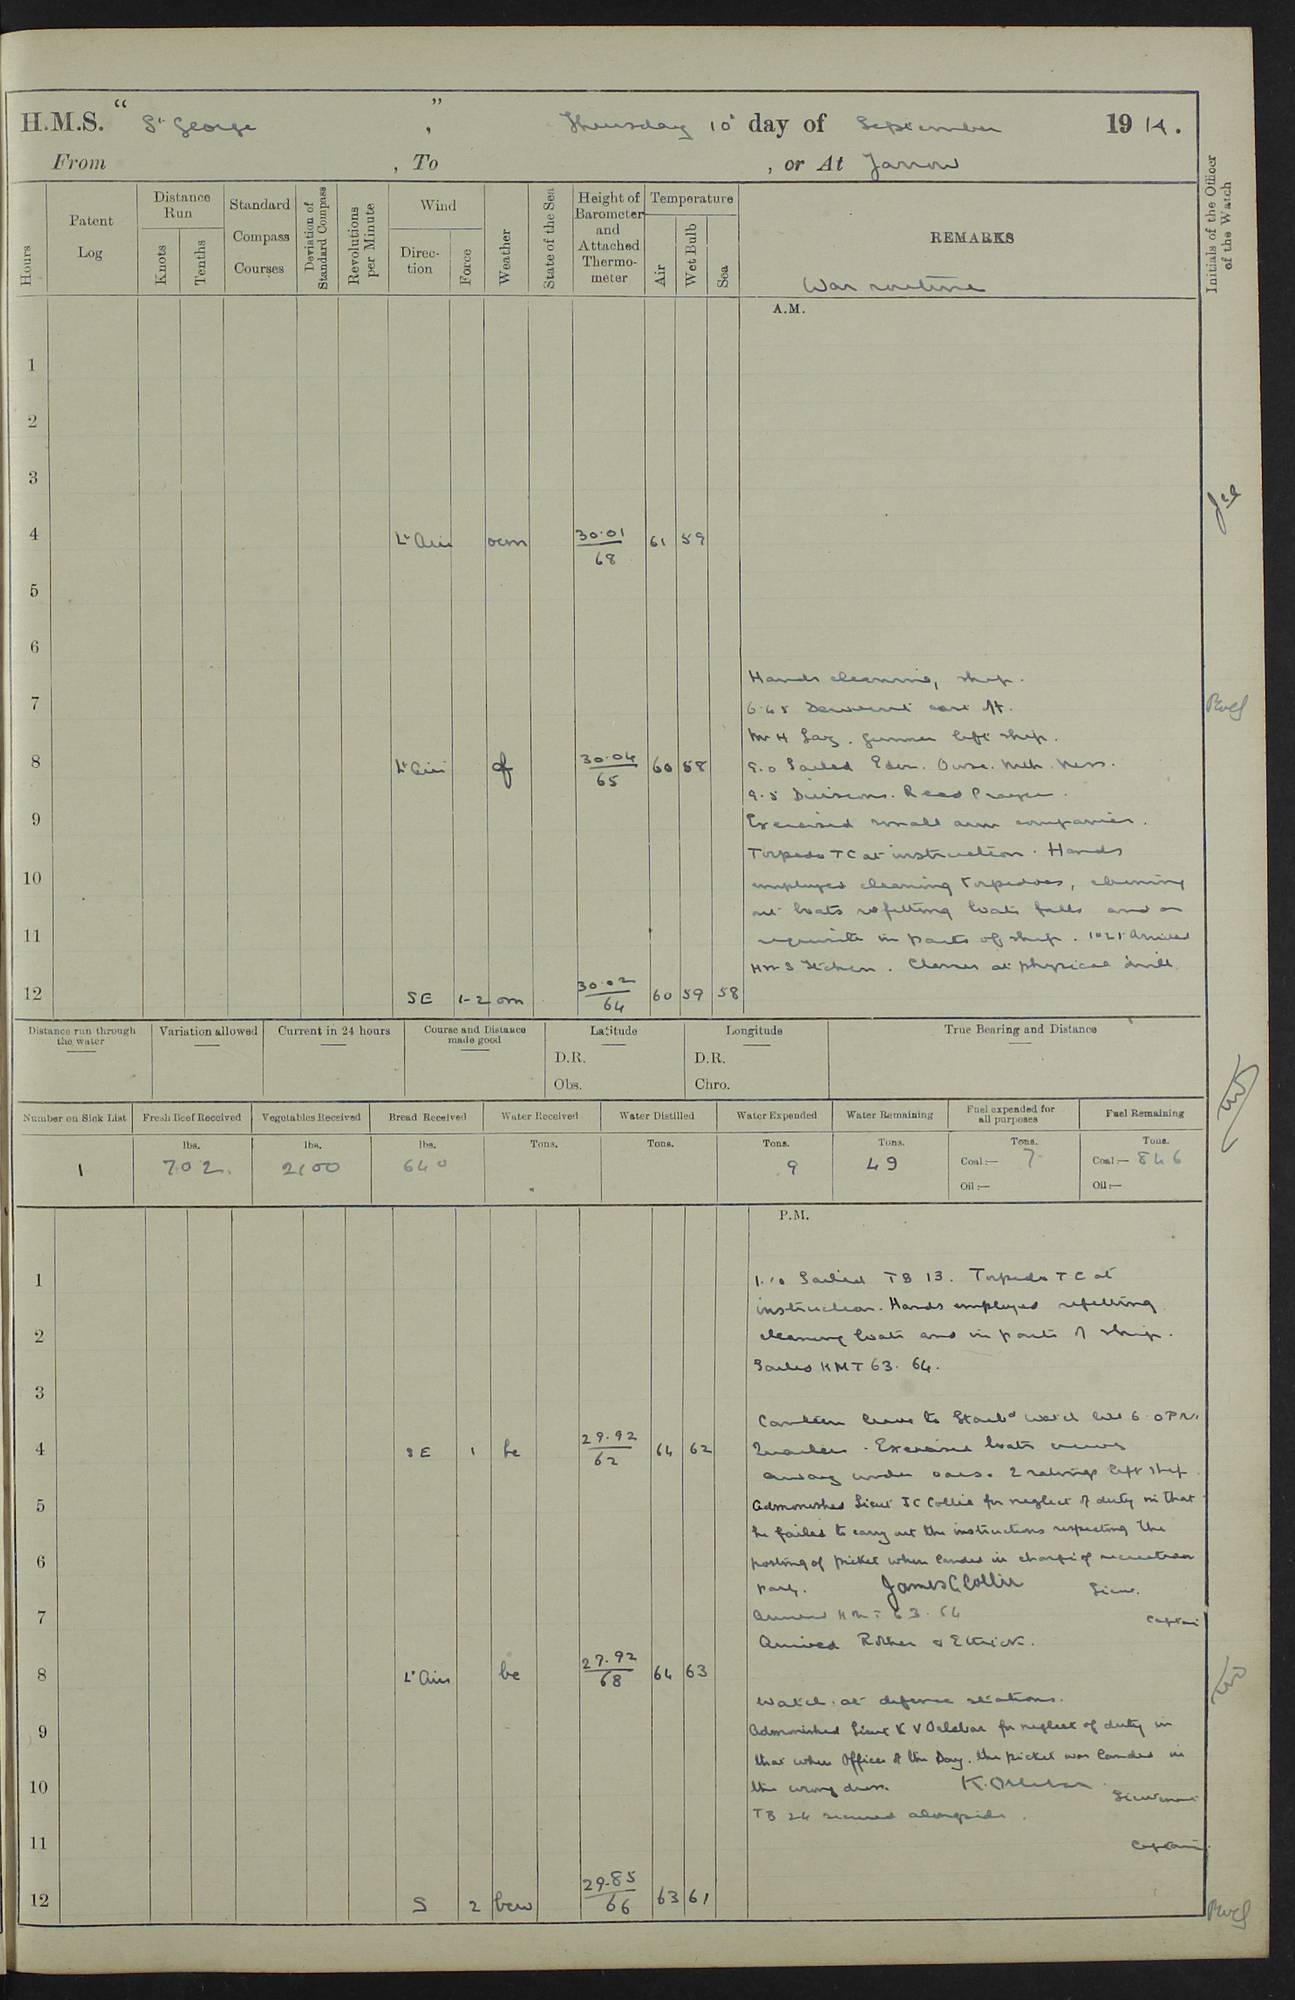 H.M.S. “ St George ” , Thursday 10th day of September 1914.
From , To , or At Jarrow
Hours
Patent Log
Distance Run
Knots
Tenths
Standard Compass Courses
Deviation of Standard Compass
Revolutions per Minute
Wind
Direction
Force
Weather
State of the Sea
Height of Barometer and Attached Thermometer
Temperature
Air
Wet Bulb
Sea
REMARKS
War routine
Initials of the Officer of the Watch
A.M.
1
2
3
4 Lt Airs ocm 30.01/68 61 59
5
6
Hands cleaning ship.
7
6.45 Derwent cast off.
Mr H Gunner left ship.
8 Lt Airs of 30.04/65 60 58
9.0 Sailed Eden. Ouse. Ness.
9.5 Divisions. Read Prayers.
9
Exercised small arm companies.
Torpedo TC at instruction. Hands
10
employed cleaning torpedoes, cleaning
out boats refitting boats falls and as
11
requisite in parts of ship. 1021 Arrived
HMS Itchen. Classes at physical drill.
12 SE 1-2 om 30.02/64 60 59 58
Distance run through the water
Variation allowed
Current in 24 hours
Course and Distance made good
Latitude
D.R.
Obs.
Longitude
D.R.
Chro.
True Bearing and Distance
Number on Sick List
Fresh Beef Received
Vegetables Received
Bread Received
Water Received
Water Distilled
Water Expended
Water Remaining
Fuel expended for all purposes
Fuel Remaining
lbs. lbs. lbs. Tons. Tons. Tons. Tons. Tons. Tons.
1 702. 2100 640 9 49 Coal:— 7 Coal:— 846
Oil:— Oil:—
P.M.
1
1.10 Sailed TB 13. Torpedo TC at
instruction. Hands employed refitting
2
cleaning boats and in parts of ship.
Sailed HMT 63. 64.
3
Canteen leave to Starbd watch till 6.0 PM.
4 SE 1 bc 29.92/62 64 62
Quarters. Exercised boats crews
away under oars. 2 ratings left ship.
5
Admonished Lieut JC Collie for neglect of duty in that
he failed to carry out the instructions respecting the
6
posting of picket when landed in charge of recreation
party. James C Collie Lieut.
7
Arrived HMT 63. 64 Captain
Arrived Rother & Ettrick.
8 Lt Airs bc 29.92/68 64 63
Watch at defence stations.
9
Admonished Lieut K V Orlebar for neglect of duty in
that when Officer of the Day, the picket was landed in
10
the wrong dress. K. Orlebar Lieutenant
TB 24 secured alongside.
11
Captain
12 S 2 bcw 29.85/66 63 61